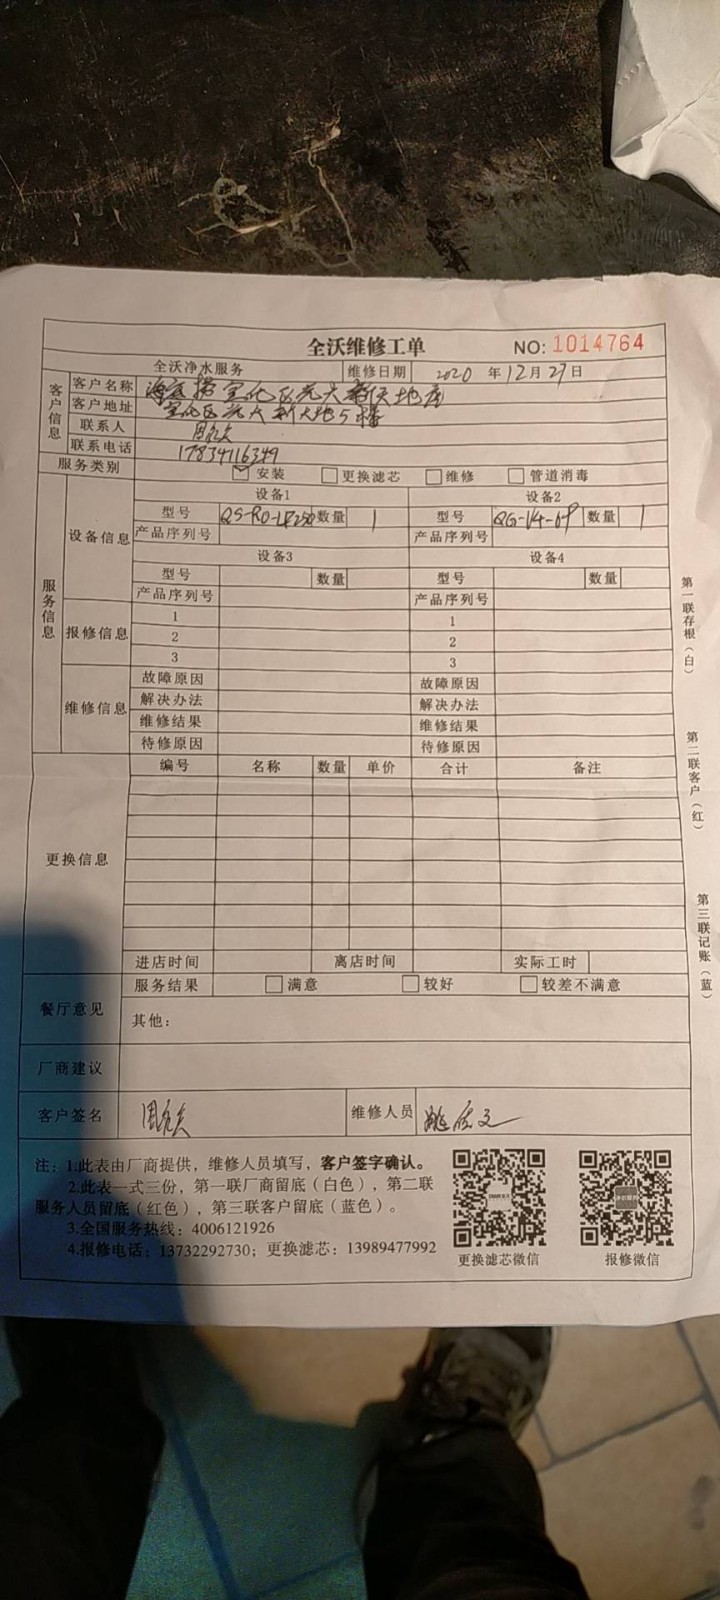 全沃维修工单 NO: 1014764
全沃净水服务 维修日期 2020 年 12 月 27 日
客户信息
客户名称 海底捞宣化区光大新天地店
客户地址 宣化区光大新天地5楼
联系人
联系电话 17834116349
服务类别 安装 更换滤芯 维修 管道消毒
服务信息
设备信息
设备1 设备2
型号 QS-RO-LR250 数量 1 型号 数量 1
产品序列号 产品序列号
设备3 设备4
型号 数量 型号 数量
产品序列号 产品序列号
报修信息
1 1
2 2
3 3
维修信息
故障原因 故障原因
解决办法 解决办法
维修结果 维修结果
待修原因 待修原因
更换信息
编号 名称 数量 单价 合计 备注
进店时间 离店时间 实际工时
餐厅意见
服务结果 满意 较好 较差不满意
其他：
厂商建议
客户签名 维修人员
注：1.此表由厂商提供，维修人员填写，客户签字确认。
2.此表一式三份，第一联厂商留底（白色），第二联
服务人员留底（红色），第三联客户留底（蓝色）。
3.全国服务热线：4006121926
4.报修电话：13732292730；更换滤芯：13989477992
更换滤芯微信 报修微信
第一联存根（白）
第二联客户（红）
第三联记账（蓝）